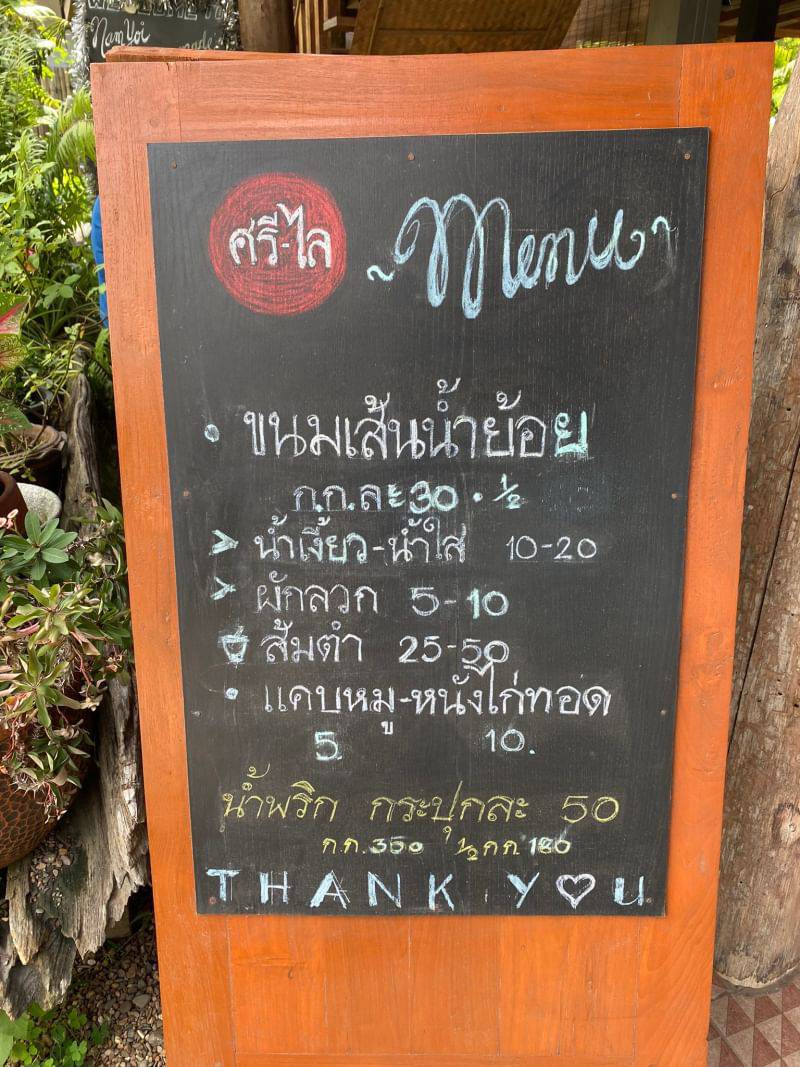 Nam Yoi
ศรี-ไล
~Menu~
• ขนมเส้นน้ำย้อย
ก.ก.ละ 30 • ½
> น้ำเงี้ยว-น้ำใส 10-20
> ผักลวก 5-10
ส้มตำ 25-50
• แคบหมู-หนังไก่ทอด
5. 10.
น้ำพริก กระปุกละ 50
ก.ก. 350 ½ ก.ก. 180
THANK Y♡U